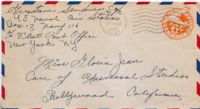 Gustave Sondun S 2/c
U.S. Naval Air Station
Box 17 Navy 116
% Fleet Post Office
New York NY
6¢
Miss Gloria Jean
Care of Universal Studios
Hollywood California